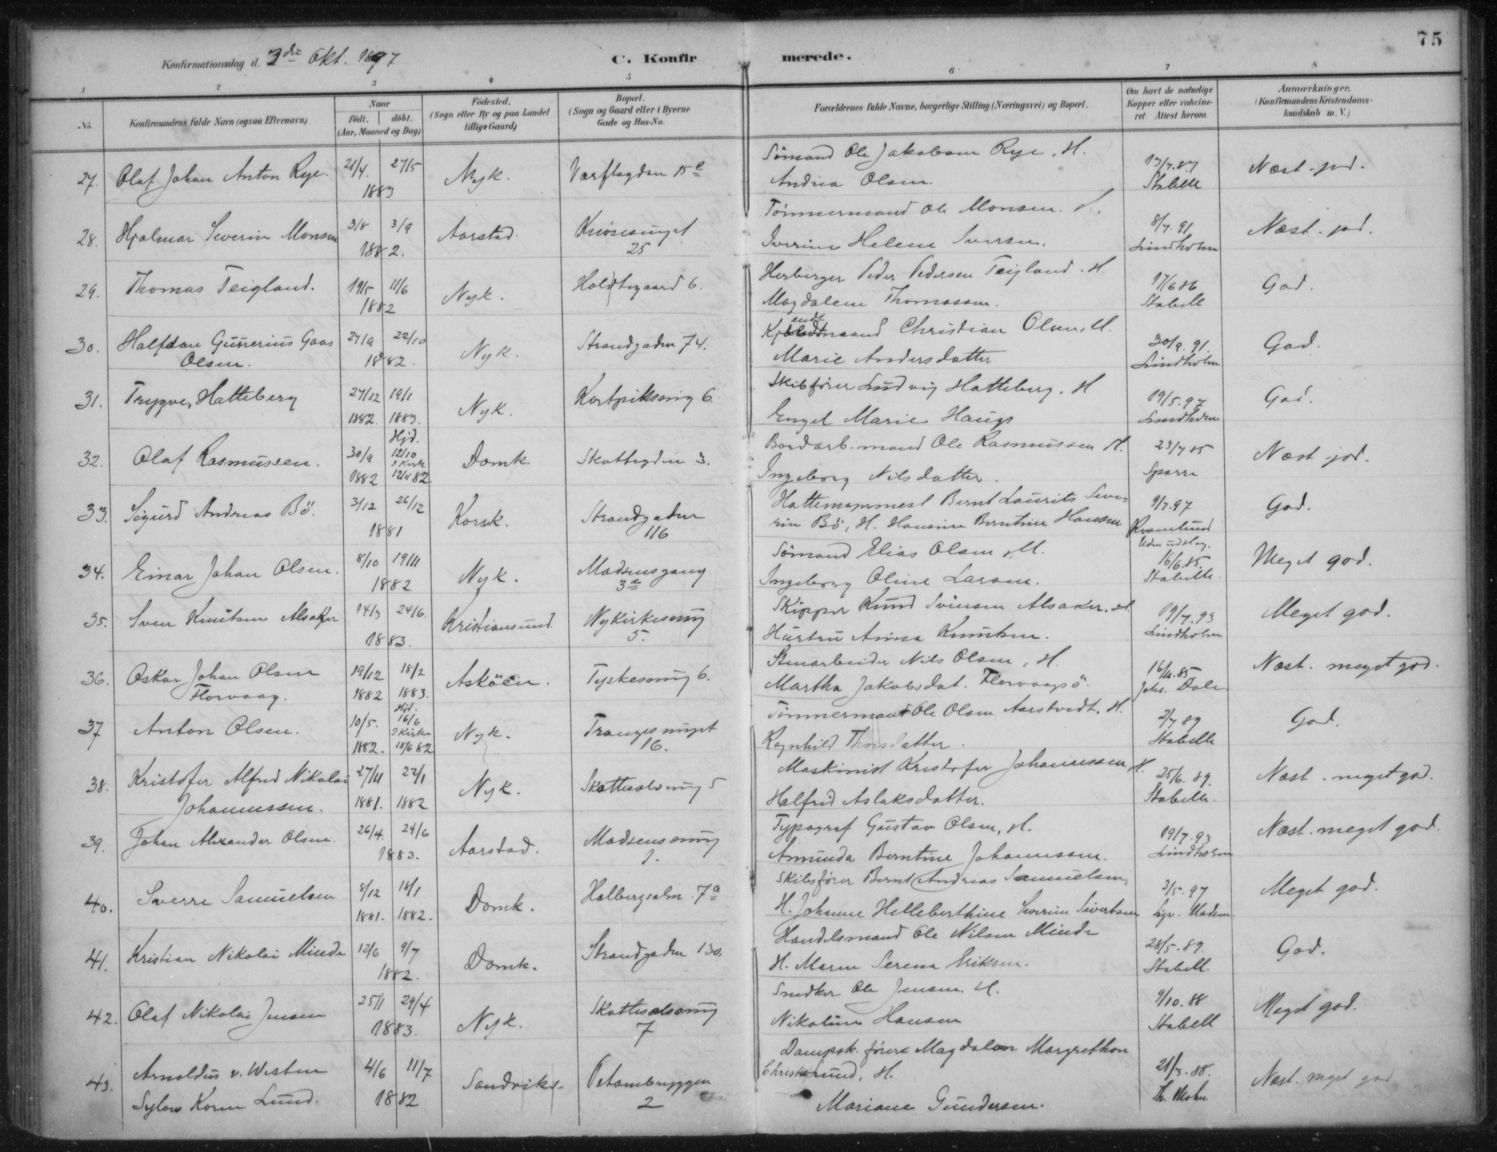 75
Konfirmationsdag d. 3die Okt. 1897
C. Konfirmerede.
1 2 3 4 5 6 7 8
No.
Konfirmandens fulde Navn (ogsaa Efternavn)
Naar
født. døbt.
(Aar, Maaned og Dag)
Fødested.
(Sogn eller By og paa Landet tillige Gaard)
Bopæl.
(Sogn og Gaard eller i Byerne Gade og Hus-No.
Forældrenes fulde Navne, borgerlige Stilling (Næringsvei) og Bopæl.
Om havt de naturlige Kopper eller vaccineret Attest herom.
Anmærkninger.
(Konfirmandens Kristendomskundskab m. V.)
27. Olaf Johan Anton Rye. 21/4 27/5 1883 Nyk. Værftsgden 15 e Sømand Ole Jakobsen Rye, H. Andrea Olsen. 17/7.87 Stabell Næst. god.
28. Hjalmar Severin Monsen 3/8 3/9 1882. Aarstad. Knøsesmuget 25 Tømmermand Ole Monsen. H. Iverine Helene Iversen. 8/7.91 Lindholm Næst. god.
29. Thomas Teigland. 19/5 11/6 1882 Nyk. Holdtegaard 6. Herberger Peder Pedersen Teigland. H. Magdalene Thomassen. 17/6 86 Stabell God.
30. Halfdan Gunerius Gaas Olsen. 24/9 22/10 1882. Nyk. Strandgaden 74. Kjøbmand Christian Olsen, H. Marie Andersdatter 30/9.91. Lindholm God.
31. Trygve Hatteberg 27/12 19/1 1882. 1883. Nyk. Kortpiksmug 6 Skibsfører Ludvig Hatteberg. H Engel Marie Haugs 19/5.97 Lindholm God.
32. Olaf Rasmussen. 30/9 Hjd. 12/10 I Kirk 1882 12/11 82 Domk. Skottegden 3. Bordarb.mand Ole Rasmussen H. Ingeborg Nilsdatter. 23/7 85 Sparre Næst god.
33. Sigurd Andreas Bö. 3/12 26/12 1881 Korsk. Strandgaden 116 Hattemagermest Bernt Laurits Severin Bö, H. Hansine Berntine Hansen 9/7.97 Rosenlund Uden udslag. God.
34. Einar Johan Olsen. 8/10 19/11 1882 Nyk. Madsensgang 3 Sømand Elias Olsen, H. Ingeborg Oline Larsen. 16/6.85 Stabell. Meget god.
35. Sven Knutsen Alsaker 14/3 24/6. 1883. Kristiansund Nykirkesmug 5. Skipper Knud Svensen Alsaker. H Hustru Anna Knutsen. 19/7.93 Lindholm Meget god.
36. Oskar Johan Olsen Florvaag. 19/12 18/2 1882 1883. Asköen. Tyskesmug 6. Stenarbeider Nils Olsen, H. Martha Jakobsdat. Florvaagsö. 16/11.85 Johs. Dale Næst. meget god.
37 Anton Olsen. 10/5. Hjd. 16/6 I Kirken 1882. 18/6 82 Nyk. Trangesmuget 16. Tömmermand Ole Olsen Aarstvedt. H. Ragnhild Thorsdatter. 2/7 89 Stabell God.
38. Kristofer Alfred Nikolai Johannessen. 27/11 22/1 1881. 1882 Nyk. Skottesalsmug 5 Maskinist Kristofer Johannessen H. Halfrid Aslaksdatter. 25/6. 89. Stabell. Næst. meget god.
39. Johan Alexander Olsen. 26/4 24/6 1883. Aarstad. Madsensmug Typograf Gustav Olsen, H. Aminda Berntine Johannessen. 19/7.93 Lindholm Næst. meget god.
40. Sverre Samuelsen 8/12 18/1 1881. 1882. Domk. Holbergsalm 7a Skibsfører Bernt Andreas Samuelsen, H. Johanne Helleberthine Severine Sivertsen 3/5.97 Madsen Meget god.
41. Kristian Nikolai Minde 12/6 9/7 1882. Domk. Strandgaden 130. Handelsmand Ole Nilsen Minde H. Maren Serena Eriksen. 28/5.89. Stabell. God.
42. Olaf Nikolai Jensen 25/1 29/4 1883. Nyk. Skottesalsmug 7 Snedker Ole Jensen. H. Nikoline Hansen 9/10.88 Stabell Meget god.
43. Arnoldus v. Westen Sylow Koren Lund. 4/6 11/7 1882 Sandviks. 2 Dampsk.fører Magdalon Margrethon Christie Lund, H. Mariane Gundersen. 21/3.88. Th. Mohn Næst. meget god